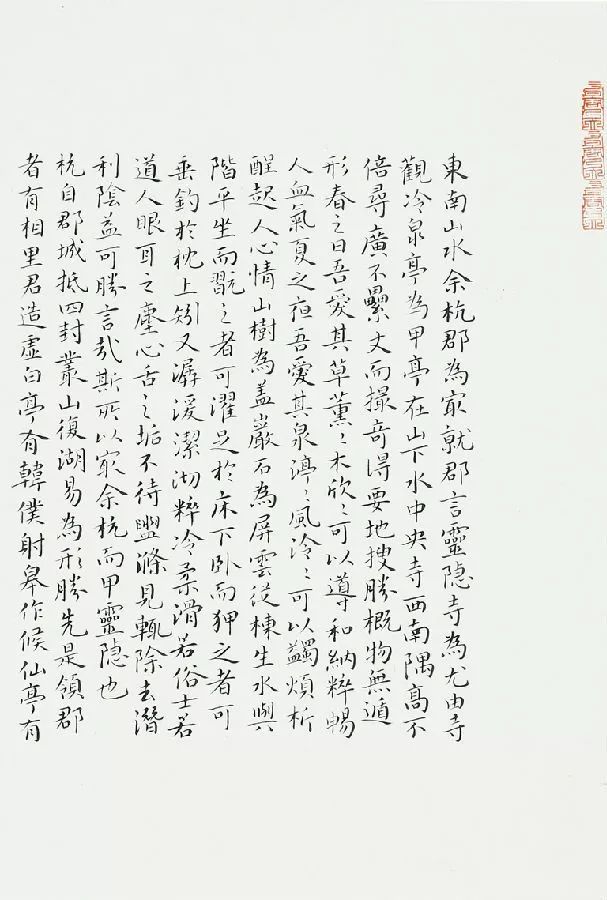 東南山水余杭郡為冣就郡言靈隱寺為尤由寺
觀冷泉亭為甲亭在山下水中央寺西南隅高不
倍尋廣不壘丈而撮奇得要地搜勝概物無遁
形春之日吾愛其草薰〻木欣〻可以導和納粹暢
人血氣夏之夜吾愛其泉渟〻風泠〻可以蠲煩析
酲起人心情山樹為蓋巖石為屏雲從棟生水與
階平坐而翫之者可濯足於床下卧而狎之者可
垂釣於枕上矧又潺湲潔沏粹冷柔滑若俗士若
道人眼耳之塵心舌之垢不待盥滌見輒除去潛
利陰益可勝言哉斯所以冣余杭而甲靈隱也
杭自郡城抵四封叢山復湖易為形勝先是領郡
者有相里君造虛白亭有韓僕射皋作候仙亭有